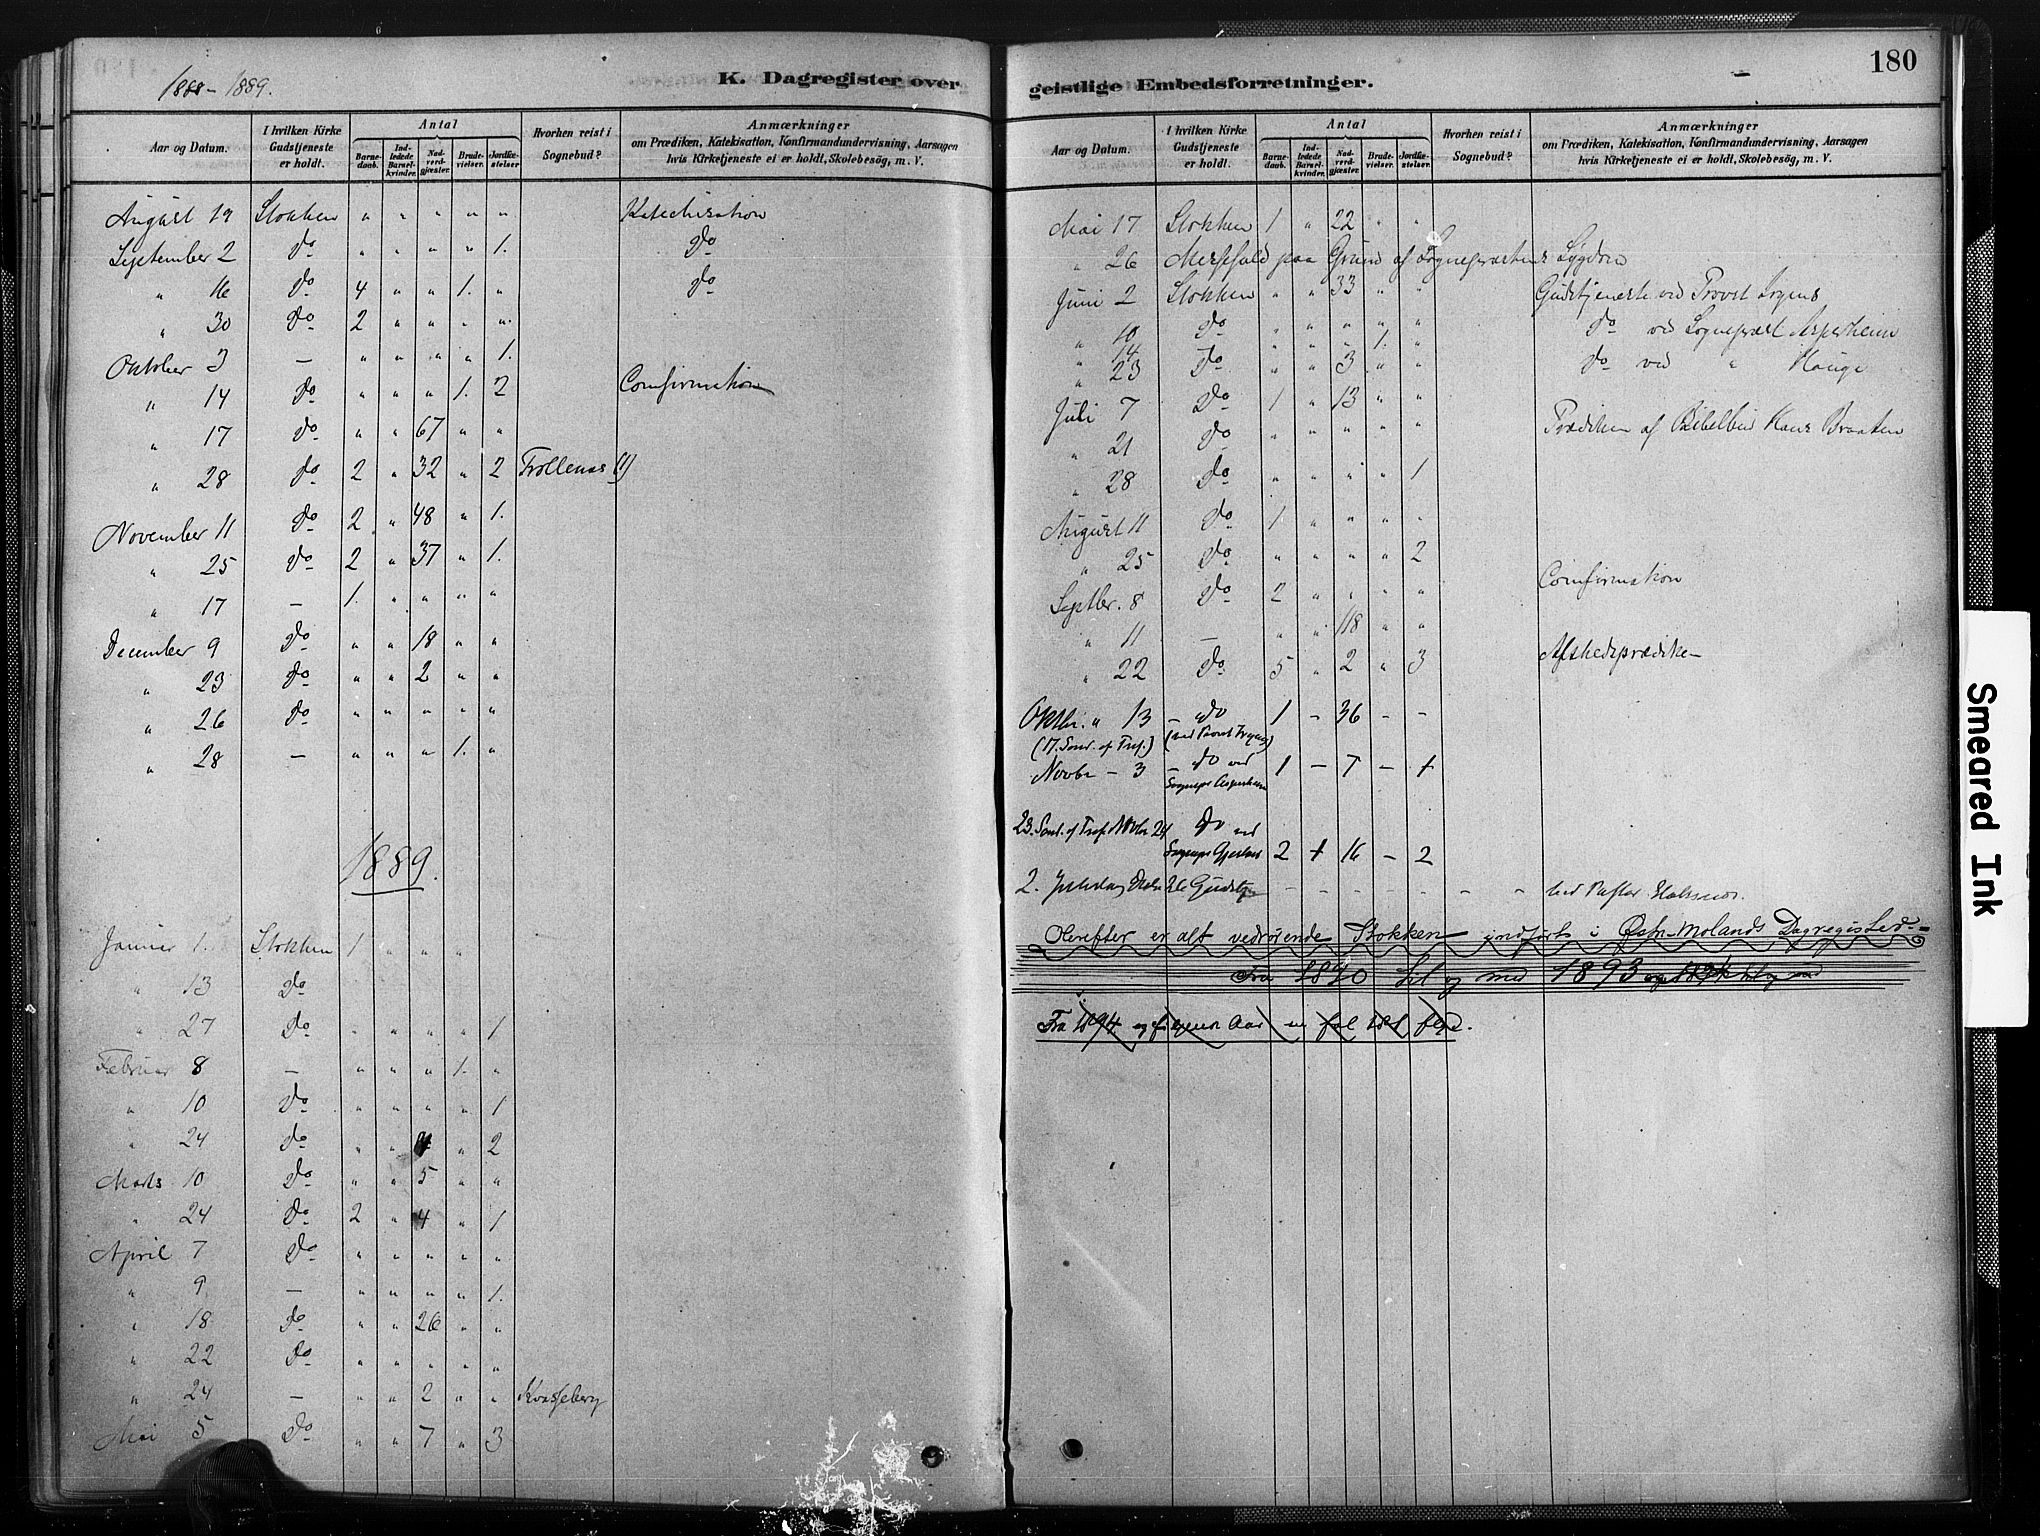 180
1888-1889.
K. Dagregister over
Aar og Datum. | I hvilken Kirke Gudstjeneste er holdt. | Antal | Barnedaab. | Indledede Barselkvinder. | Nadverdgjæster. | Brudevielser. | Jordfæstelser. | Hvorhen reist i Sognebud? | Anmærkninger om Prædiken, Katekisation, Konfirmandundervisning, Aarsagen hvis Kirketjeneste ei er holdt, Skolebesøg, m. V.
August 19 Stokken " " " " " Katechisation
September 2 Do " " " " 1. Do
" 16 Do 4 " " 1. " Do
" 30 Do 2 " " " "
Oktober 3 — " " " " 1.
" 14 Do " " " 1. 2 Comfirmation
" 17 Do " " 67 " "
" 28 Do 2 " 32 " 2 Trollenæs (1)
November 11 Do 2 " 48 " 1.
" 25 Do 2 " 37 " 1.
" 17 — 1. " " " "
December 9 Do " " 18 " "
" 23 Do " " 2 " "
" 26 Do " " " " "
" 28 — " " " 1. "
1889.
Januar 1. Stokken 1 " " "
" 13 Do
" 27 Do " " " " 1
Februar 8 — " " " 1. "
" 10 Do " " " " 1
" 24 Do " " " 2
Marts 10 Do " " 5 " "
" 24 Do 2 " 4 " 1
April 7 Do " " " " "
" 9 — " " " " 1.
" 18 Do " " 26 " "
" 22 Do " " " " "
" 24 — " " 2 " " Kvasseberg
Mai 5 Do " " 7 " 3
geistlige Embedsforretninger.
Aar og Datum. | I hvilken Kirke Gudstjeneste er holdt. | Antal | Barnedaab. | Indledede Barselkvinder. | Nadverdgjæster. | Brudevielser. | Jordfæstelser. | Hvorhen reist i Sognebud? | Anmærkninger om Prædiken, Katekisation, Konfirmandundervisning, Aarsagen hvis Kirketjeneste ei er holdt, Skolebesøg, m. V.
Mai 17 Stokken 1 " 22 " "
" 26 Messefald paa Grund af Sognepræstens Sygdom
Juni 2 Stokken " " 33 " " Gudstjeneste ved Provst
" 10 Do " " " " " Do ved Sognepræst Asperheim
" 14 " " " 1. "
" 23 Do " " 3 " " Do ved " Hauge
Juli 7 Do 1 " 13 " "
" 21 Do " " " " " Prædiken af Bibelbud Hans Braaten
" 28 Do " " " " 1
August 11 Do 1. " " " "
" 25 Do " " " " 2
Septbr. 8 Do 2 " " " " Comfirmation
" 11 — " " 118 " "
" 22 Do 5 " 2 " 3 Afskedsprædiken
Oktbr. " 13 – do 1 – 36 – –
(17. Sønd. af Tref.) (ved Provst)
Novbr – 3 – do ved 1 – 7 – +
Sognepr Asperheim
23. Sønd. af Tref. Novbr 24 Do ved
Sognepr 2 + 16 – 2
2. Juledag Decbr 26 Gudstj – – – – – – – ved Pastor
Herefter er alt vedrørende Stokken indført i Østre-Molands Dagregister
fra 1890 til og med 1893
Fra 1894 og følgende Aar se fol 181 flgd.
Smeared Ink